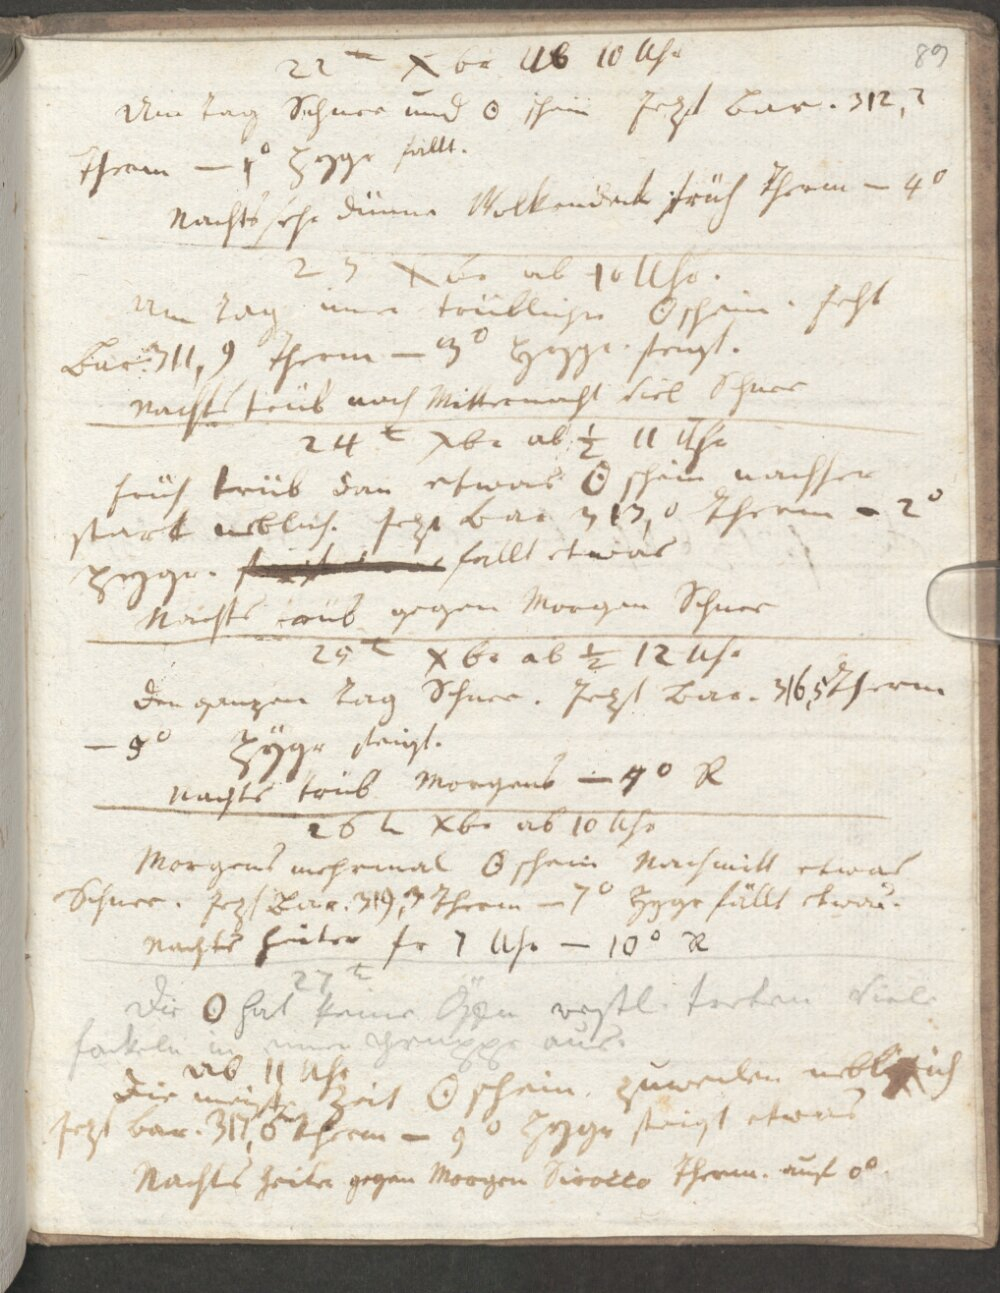 89
22 t Xbr Ab 10 Uhr
Am Tag Schnee und ☉ schein Jezt Bar. 312,2
Therm — 1° Hygr fällt.
Nachts sehr dünne Wolkendeck früh Therm — 4°
23 Xbr ab 10 Uhr.
Am Tag trüblicher ☉schein. Jezt
Bar. 311,9 Therm — 3° Hygr. steigt.
Nachts trüb nach Mitternacht viel Schnee
24 t Xbr ab ½ 11 Uhr
früh trüb dan etwas ☉ schein nachher
stark neblich. Jezt Bar 313,0 Therm — 2°
Hygr. fällt etwas
Nachts trüb gegen Morgen Schnee
25 t Xbr ab ½ 12 Uhr
Den ganzen Tag Schnee. Jezt Bar. 316,5 Therm
— 5° Hygr steigt.
Nachts trüb Morgens — 9° R
26 t Xbr ab 10 Uhr
Morgens mehrmal ☉ schein Nachmitt etwas
Schnee. Jezt Bar. 319,3 Therm — 7° Hygr fällt etwas.
Nachts heiter fr 7 Uhr — 10° R
27 t
Die ☉ hat keine westl. treten viele
fackeln in einer Gruppe aus.
ab 11 Uhr
Die meiste Zeit ☉ schein. zuweilen neblich
Jezt Bar. 317,6 Therm — 9° Hygr steigt etwas
Nachts heiter gegen Morgen Sirocco Therm. auf 0°.